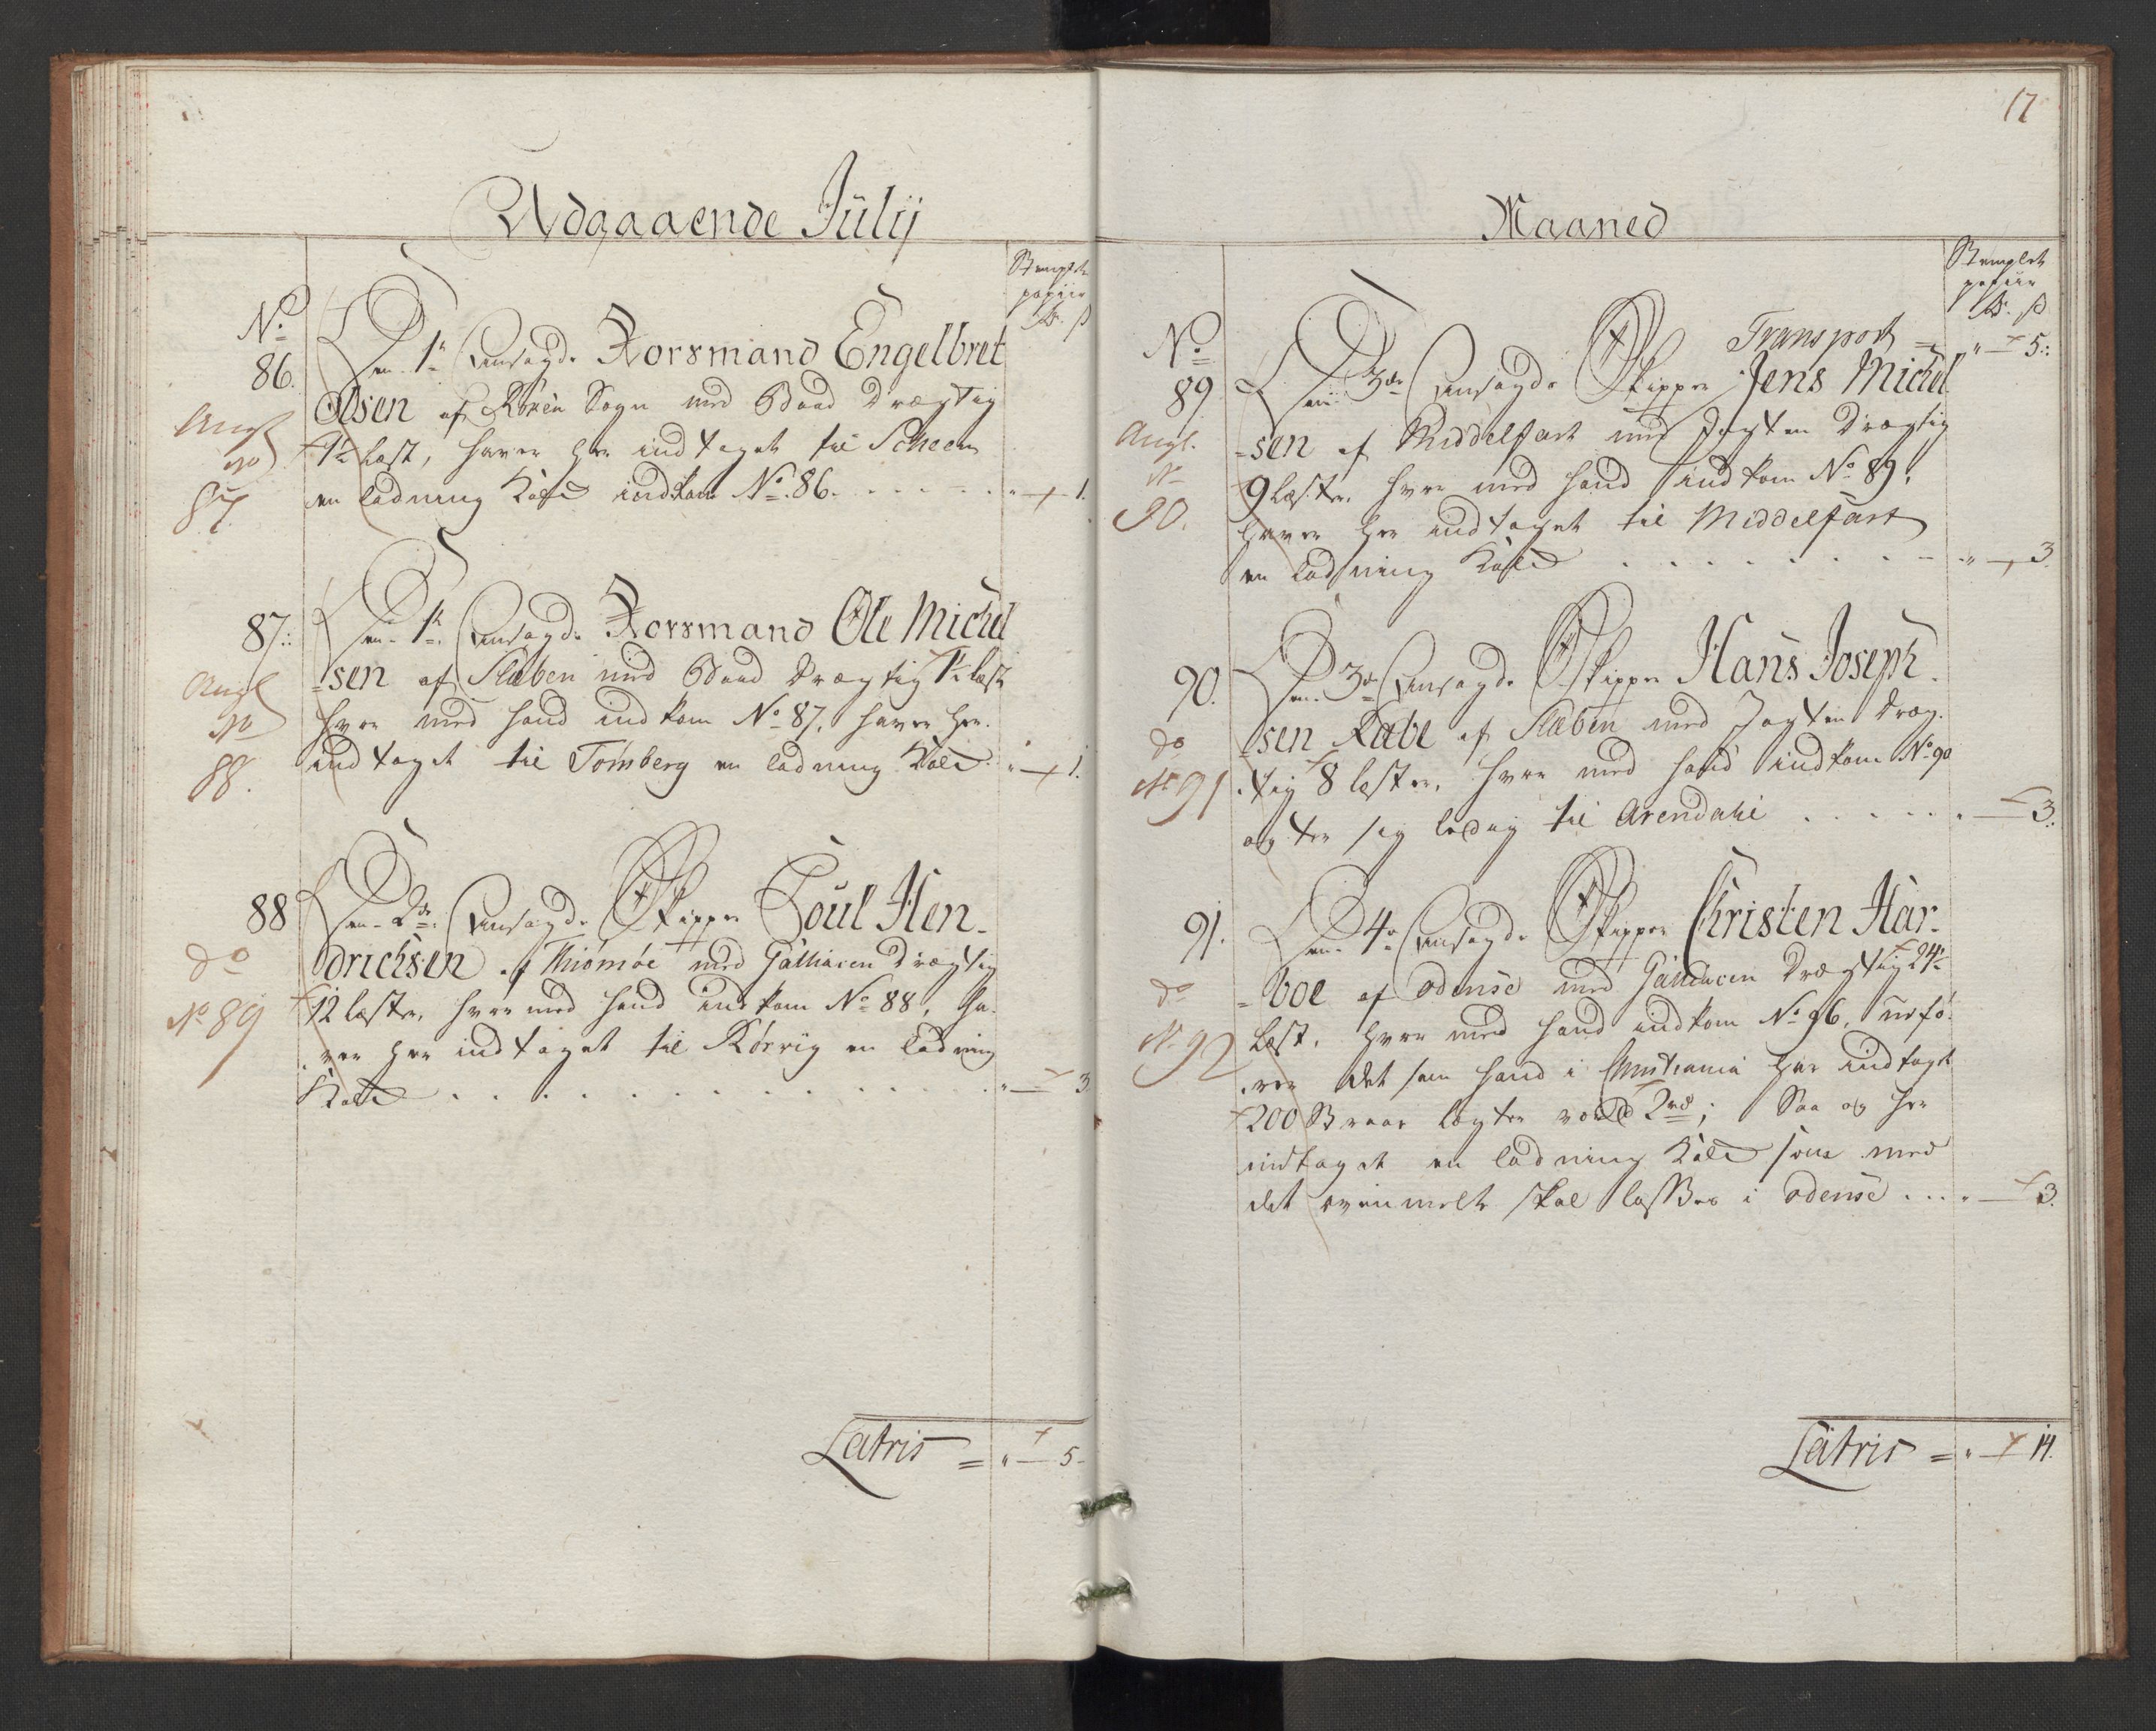 Udgaaende Julij
Stemplet
papiir
Rd. ß
No
86.
Den 1e Ansagde Norsmand Engelbret
Olsen af Roxen Sogn med Baad Drægtig
1½ Læst, haver her indtaget til Scheen
en Ladning Kald indkom No. 86. " — 1.
Angl
No
87.
87. Den 1e Ansagde Norsmand Ole Michel
-sen af Slæben med Baad Drægtig 1½ Læst
hvor med hand indkom No 87, haver her
indtaget til Tømberg en Ladning Kald " — 1.
Angl
No
88.
88 Den 2de Ansagde Skipper Poul Hen-
drichsen af Thiømøe med Galliacen Drægtig
12 Læster, hvor med hand indkom No 88, ha-
ver her indtaget til Rørvig en Ladning
Kald " — 3
do
No 89
Latris = " — 5
17
Maaned
Stemplet
papiir
Rd. ß
Transport = " — 5
No
89 Den 3de Ansagde Skipper Jens Michel
-sen af Middelfart med Jagten Drægtig
9 Læster, hvor med hand indkom No 89,
haver her indtaget til Middelfart
en Ladning Kald " — 3
Angl.
No
90.
90. Den 3de Ansagde Skipper Hans Joseph-
-sen Rabe af Slæben med Jagten Dræg-
-tig 8 Læster, hvor med hand indkom No 90
agter sig ledig til Arendahl " — 3.
do
No 91
91. Den 4e Ansagde Skipper Christen Har-
-boe af Odense med Galliacen Drægtig 24½
Læst, hvor med hand indkom No 96, udfø-
-rer det som hand i Christiania har indtaget
200 Sraae Lægter 2; Saa og her
indtaget en Ladning Kald som med
det ovenmelte skal losses i Odense " — 3.
do
No 92
Latris = " — 14.